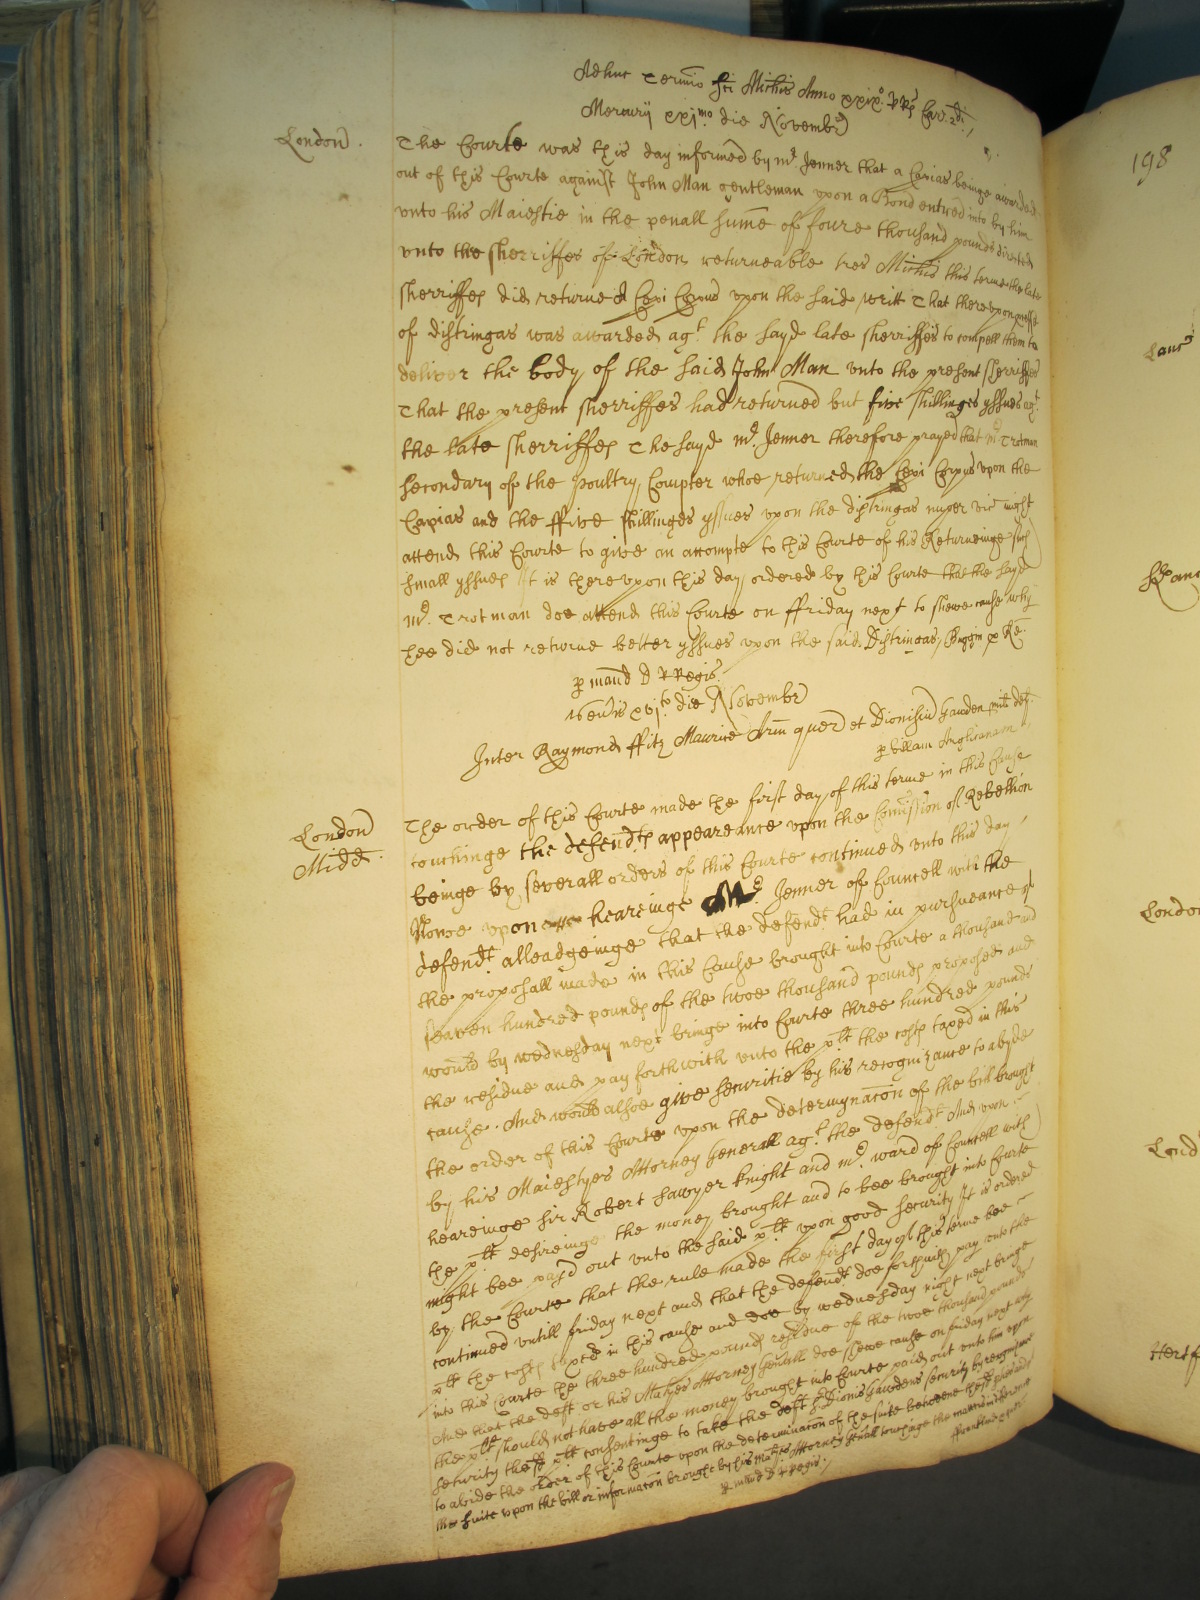 Adhuc Termio sci Michis Anno xxixo R Rs Car. 2di
Mercurij xxjmo die Novembr
London
The Courte was this day informed by mr. Jenner that a Capias beinge awarded
out of this Courte against John Man gentleman upon a Bond entred into by him
unto his Maiestie in the penall sume of foure thousand pounds directed
unto the sherriffes of London returneable tres Michis this terme the late
sherriffes did returned Cepi Corpus upon the said writt That thereupon
of distringas was awarded agt the sayd late sherriffes to compell them to
deliver the body of the said John Man unto the present sherriffes
That the present sherriffes had returned but five shillinges yssues agt
the late sherriffes The sayd mr. Jenner therefore prayed that mr Trotman
secondary of the Poultry Compter whoe returned the Cepi Corpus upon the
Capias and the ffive shillinges yssues upon the distringas nuper vic might
attend this Courte to give an accompte to this Courte of his Returneinge such
small yssues It is thereupon this day ordered by this Courte that the sayd
mr. Trotman doe attend this Courte on ffriday next to shewe cause why
hee did not returne better yssues upon the said Distringas,
p mand D R Regis
xvjto die Novembr
Inter Raymond ffitz Maurice Arm quer et Dionisiu Gauden milt def
p billam Anglicanam
London
Midd
The order of this Courte made the first day of this terme in this Cause
touchinge the defendts appeareance upon the Comission of Rebellion
beinge by severall orders of this Courte continued unto this day
Nowe upon heareinge Mr Jenner of Councell with the
defendt. alleadgeinge that the defendt had in pursueance of
the proposall made in this Cause brought into Courte a thousand and
seaven hundred pounds of the twoe thousand pounds proposed and
would by wednesday next bringe into Courte three hundred pounds
the residue and pay forthwith unto the plt the costs taxed in this
cause. And would alsoe give securitie by his recognizance to abyde
the order of this Courte upon the determynacon of the bill brought
by his Maiestyes Attorney Generall agt the defendt And upon
heareinge sir Robert Sawyer knight and mr. ward of Councell with
the plt desireinge the money brought and to bee brought into Courte
might bee payd out unto the said plt upon good security It is ordered
by the Courte that the rule made the first day of this terme bee
continued untill friday next and that the defendt doe forthwith pay unto the
plt the costs taxed in this cause and doe by wednesday night next bringe
into this Courte the three hundred pounds residue of the twoe thousand pounds
And that the deft or his Matyes Attorney Generall doe shewe cause on friday next why
the plt should not have all the money brought into Courte paid out unto him upon
security the plt consentinge to take the deft Sr Dionis Gaudens security by recognizance
to abide the order of this Courte upon the determinacon of the suite betweene
the suite upon the bill or informacon brought by his Matyes Attorney Generall touchinge the matters in
p mand D R Regis
198
Lanc
London
Hertf